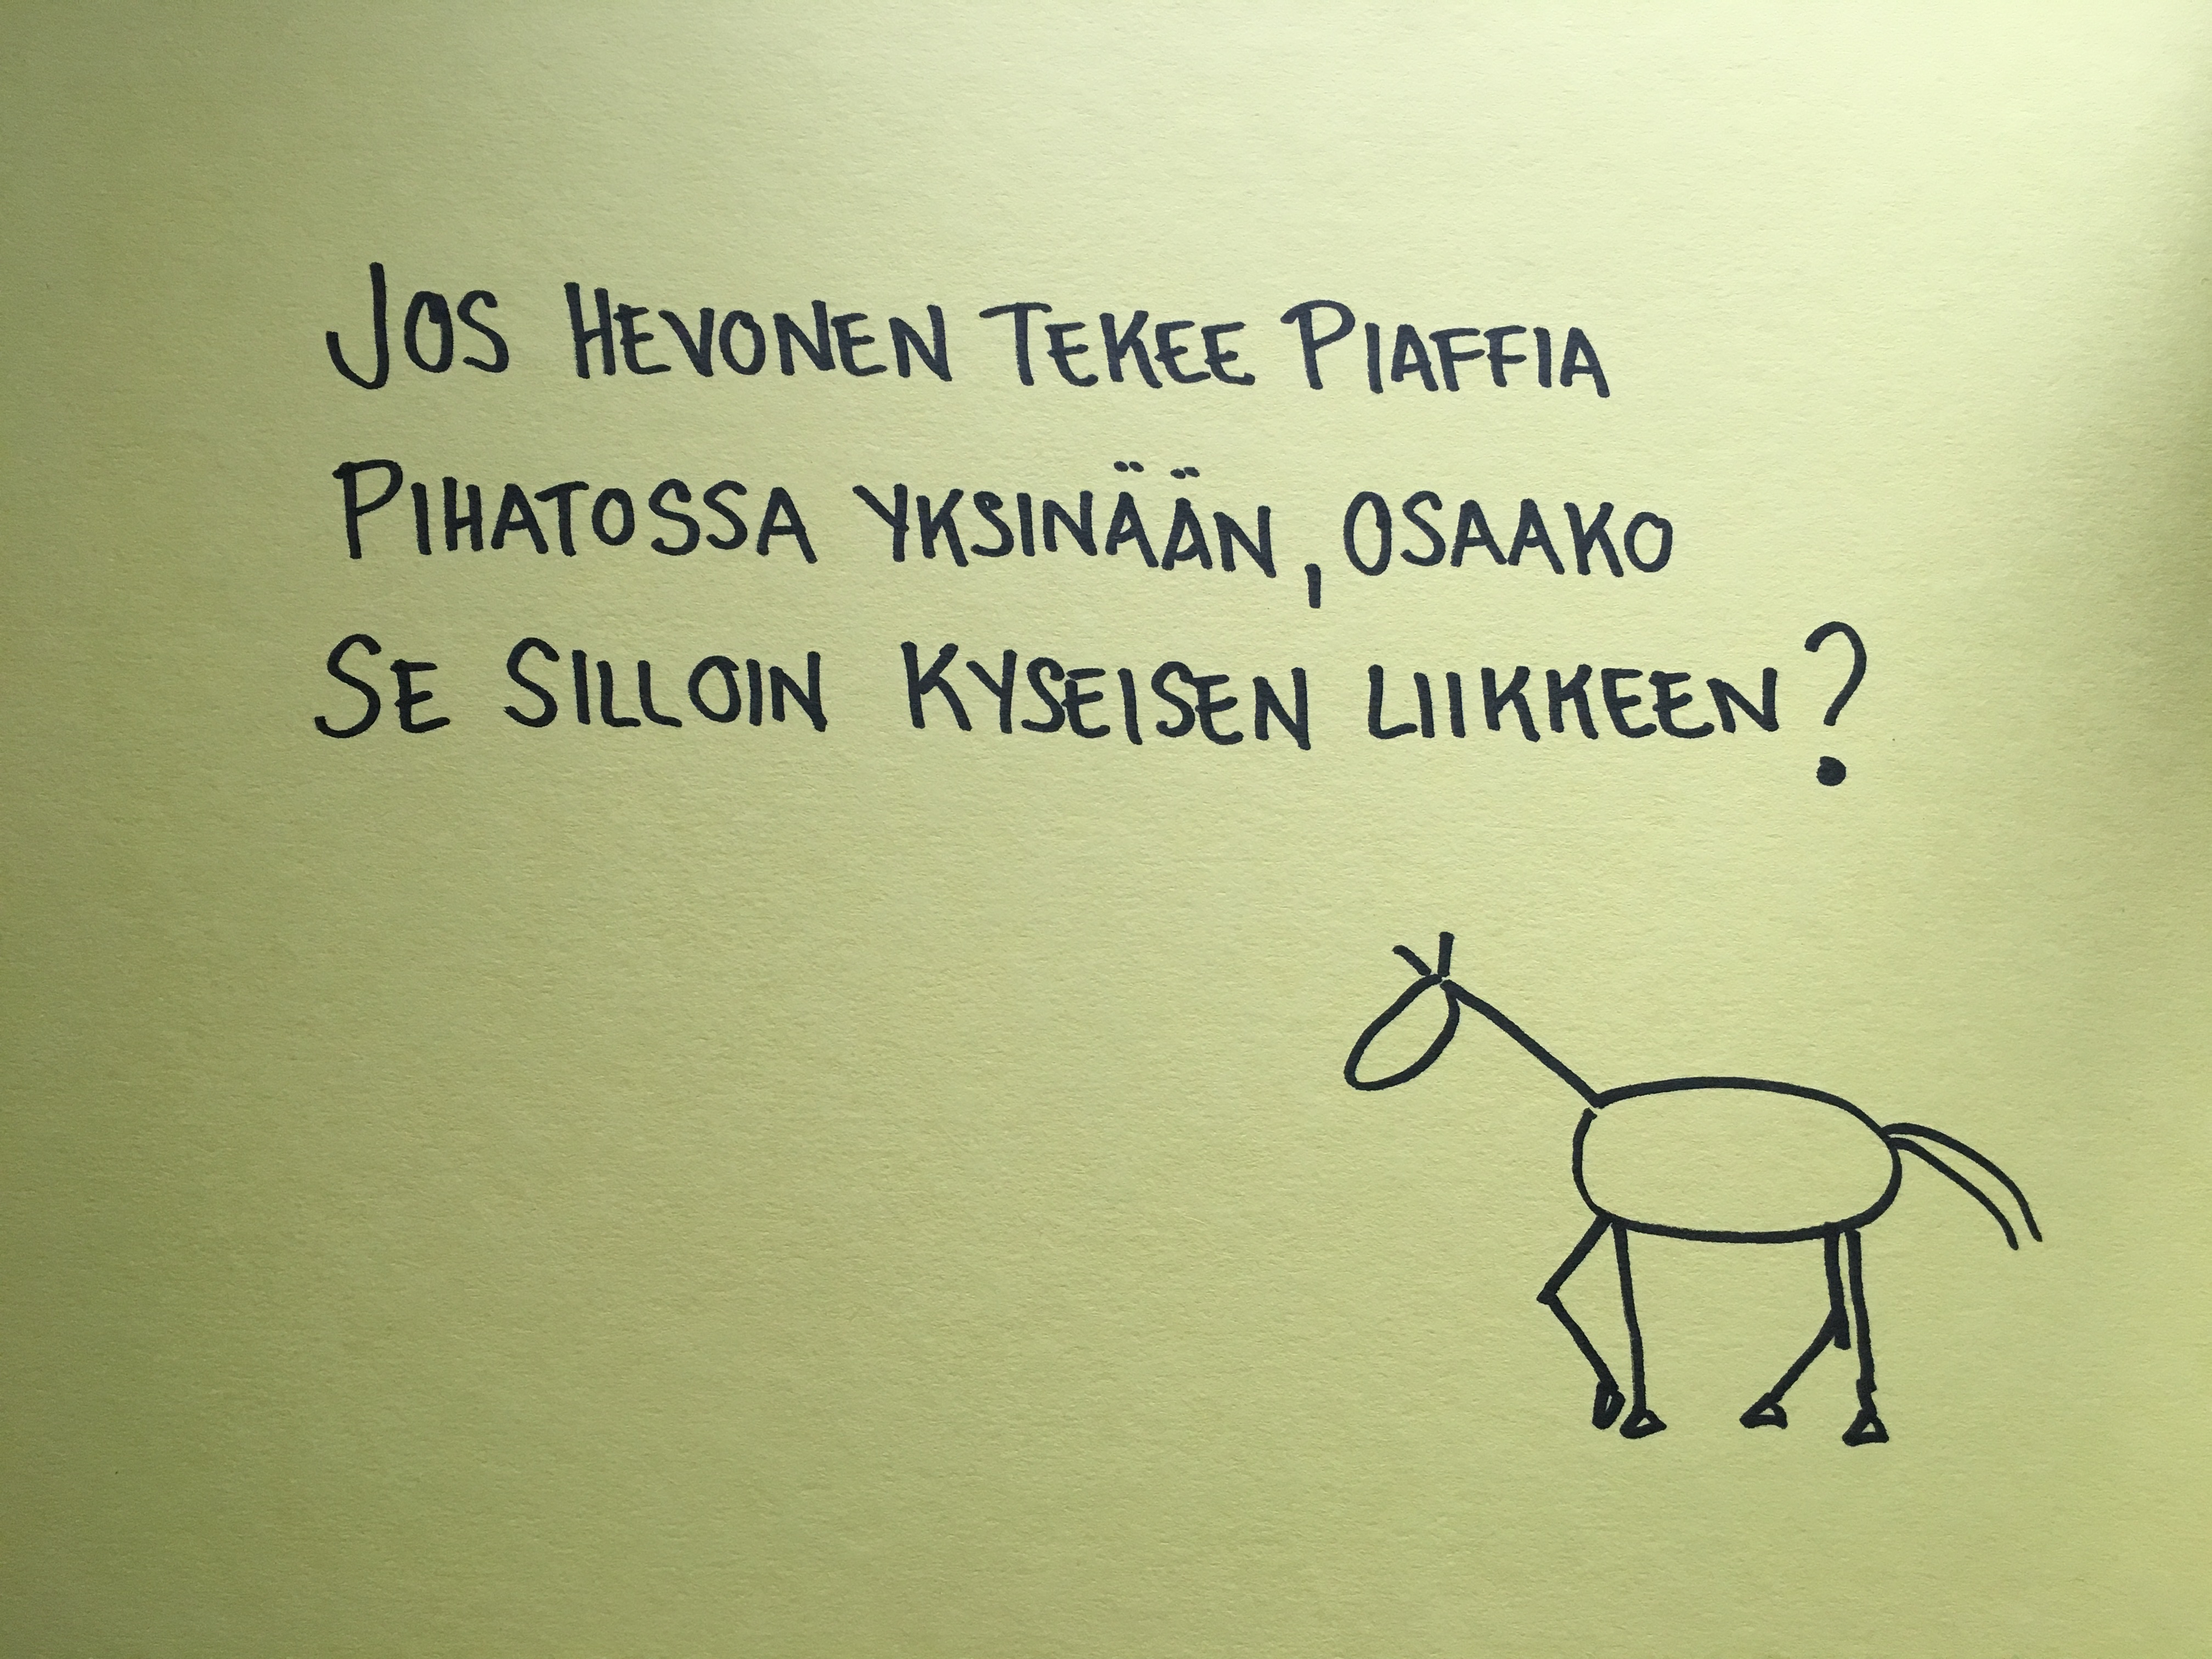 JOS HEVONEN TEKEE PIAFFIA
PIHATOSSA YKSINÄÄN, OSAAKO
SE SILLOIN KYSEISEN LIIKKEEN?